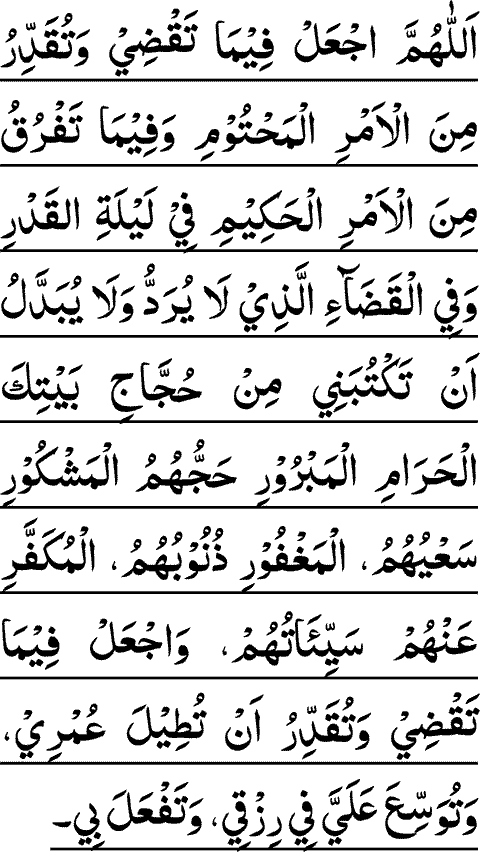 اَللّٰهُمَّ اجْعَلْ فِيْمَا تَقْضِيْ وَتُقَدِّرُ
مِنَ الْاَمْرِ الْمَحْتُوْمِ وَفِيْمَا تَفْرُقُ
مِنَ الْاَمْرِ الْحَكِيْمِ فِيْ لَيْلَةِ القَدْرِ
وَفِي الْقَضَآءِ الَّذِيْ لَا يُرَدُّ وَلَا يُبَدَّلُ
اَنْ تَكْتُبَنِي مِنْ حُجَّاجِ بَيْتِكَ
الْحَرَامِ الْمَبْرُوْرِ حَجُّهُمُ الْمَشْكُوْرِ
سَعْيُهُمُ، الْمَغْفُوْرِ ذُنُوْبُهُمُ، الْمُكَفَّرِ
عَنْهُمْ سَيِّئَاتُهُمْ، وَاجْعَلْ فِيْمَا
تَقْضِيْ وَتُقَدِّرُ اَنْ تُطِيْلَ عُمْرِيْ،
وَتُوَسِّعَ عَلَيَّ فِي رِزْقِي، وَتَفْعَلَ بِي۔